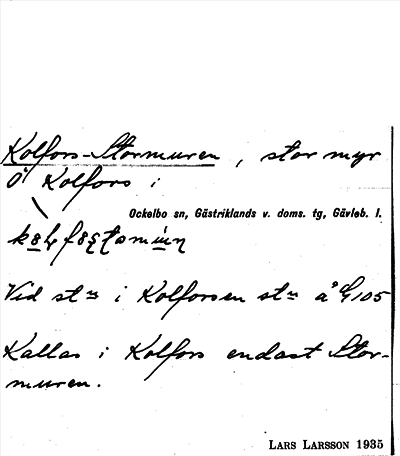 Kolfors-Stormuren, stor myr
Å Kolfors i
Ockelbo sn, Gästriklands v. doms. tg, Gävleb. l.
Vid stn i Kolforsen stn å G105
Kallas i Kolfors endast Stor-
muren.
LARS LARSSON 1935